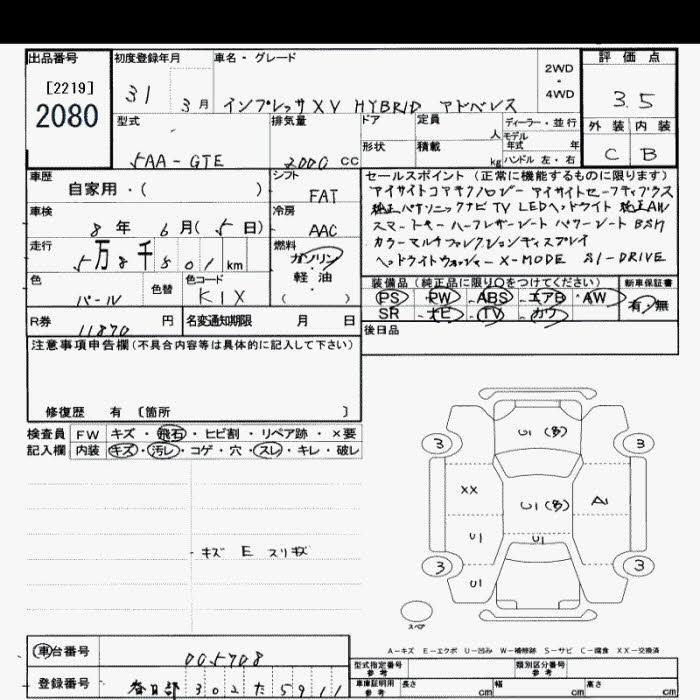 出品番号
[2219]
2080
初度登録年月
31 3月
車名・グレード
インプレッサXV HYBRID アドバンス
2WD・4WD
評価点
3.5
外装 内装
C B
型式
5AA-GTE
排気量
2000 CC
ドア
形状
定員 人
積載 kg
ディーラー・並行
モデル年式 年
ハンドル 左・右
車歴
自家用・( )
シフト
FAT
車検
8年 6月(5日)
冷房
AAC
走行
5万8千501km
燃料
ガソリン
軽油
( )
色
パール
色替
色コード
K1X
R券
11870円
名変通知期限 月 日
セールスポイント(正常に機能するものに限ります)
アイサイトコアテクノロジー アイサイトセーフティプラス
純正パナソニックナビ TV LEDヘッドライト 純正AW
スマートキー ハーフレザーシート パワーシート BSM
カラーマルチファンクションディスプレイ
ヘッドライトウォッシャー X-MODE SI-DRIVE
装備品(純正品に限り○をつけてください)
PS・PW・ABS・エアB・AW
SR・ナビ・TV・カワ
新車保証書
有・無
後日品
注意事項申告欄(不具合内容等は具体的に記入して下さい)
修復歴 有 〔箇所 〕
検査員 FW キズ・飛石・ヒビ割・リペア跡・×要
記入欄 内装 キズ・汚レ・コゲ・穴・スレ・キレ・破レ
キズ E スリキズ
U1(多)
3 3
XX
U1(多)
A1
U1
U1
3 3
U1
スペア
A-キズ E-エクボ U-凹み W-補修跡 S-サビ C-腐食 XX-交換済
車台番号
005708
登録番号
春日部 302 た 5911
型式指定番号 参考
類別区分番号 参考
車庫証明用 参考
長さ cm
幅 cm
高さ cm